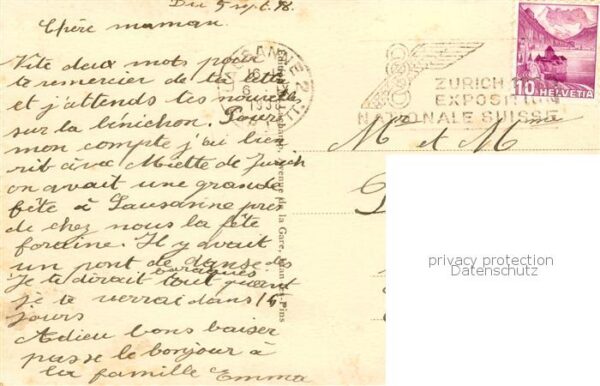 Du 5 sept. 38.
Chère maman
Vite deux mots pour
te remercier de ta
et j'attends tes nouvelles
sur la bénichon. Pour
mon compte j'ai bien
rit avec Miette de Zurich
on avait une grande
fête à Lausanne près
de chez nous la fête
foraine. Il y avait
un pont de danse des
baraques
Je te dirait tout quant
je te verrai dans 15
jours
Adieu bons baiser
passe le bonjour à
la famille Emma
LAUSANNE 2
6
ZURICH
EXPOSITION
NATIONALE SUISSE
10 HELVETIA
Mr et Mme
Avenue de la Gare, Juan-les-Pins
privacy protection
Datenschutz